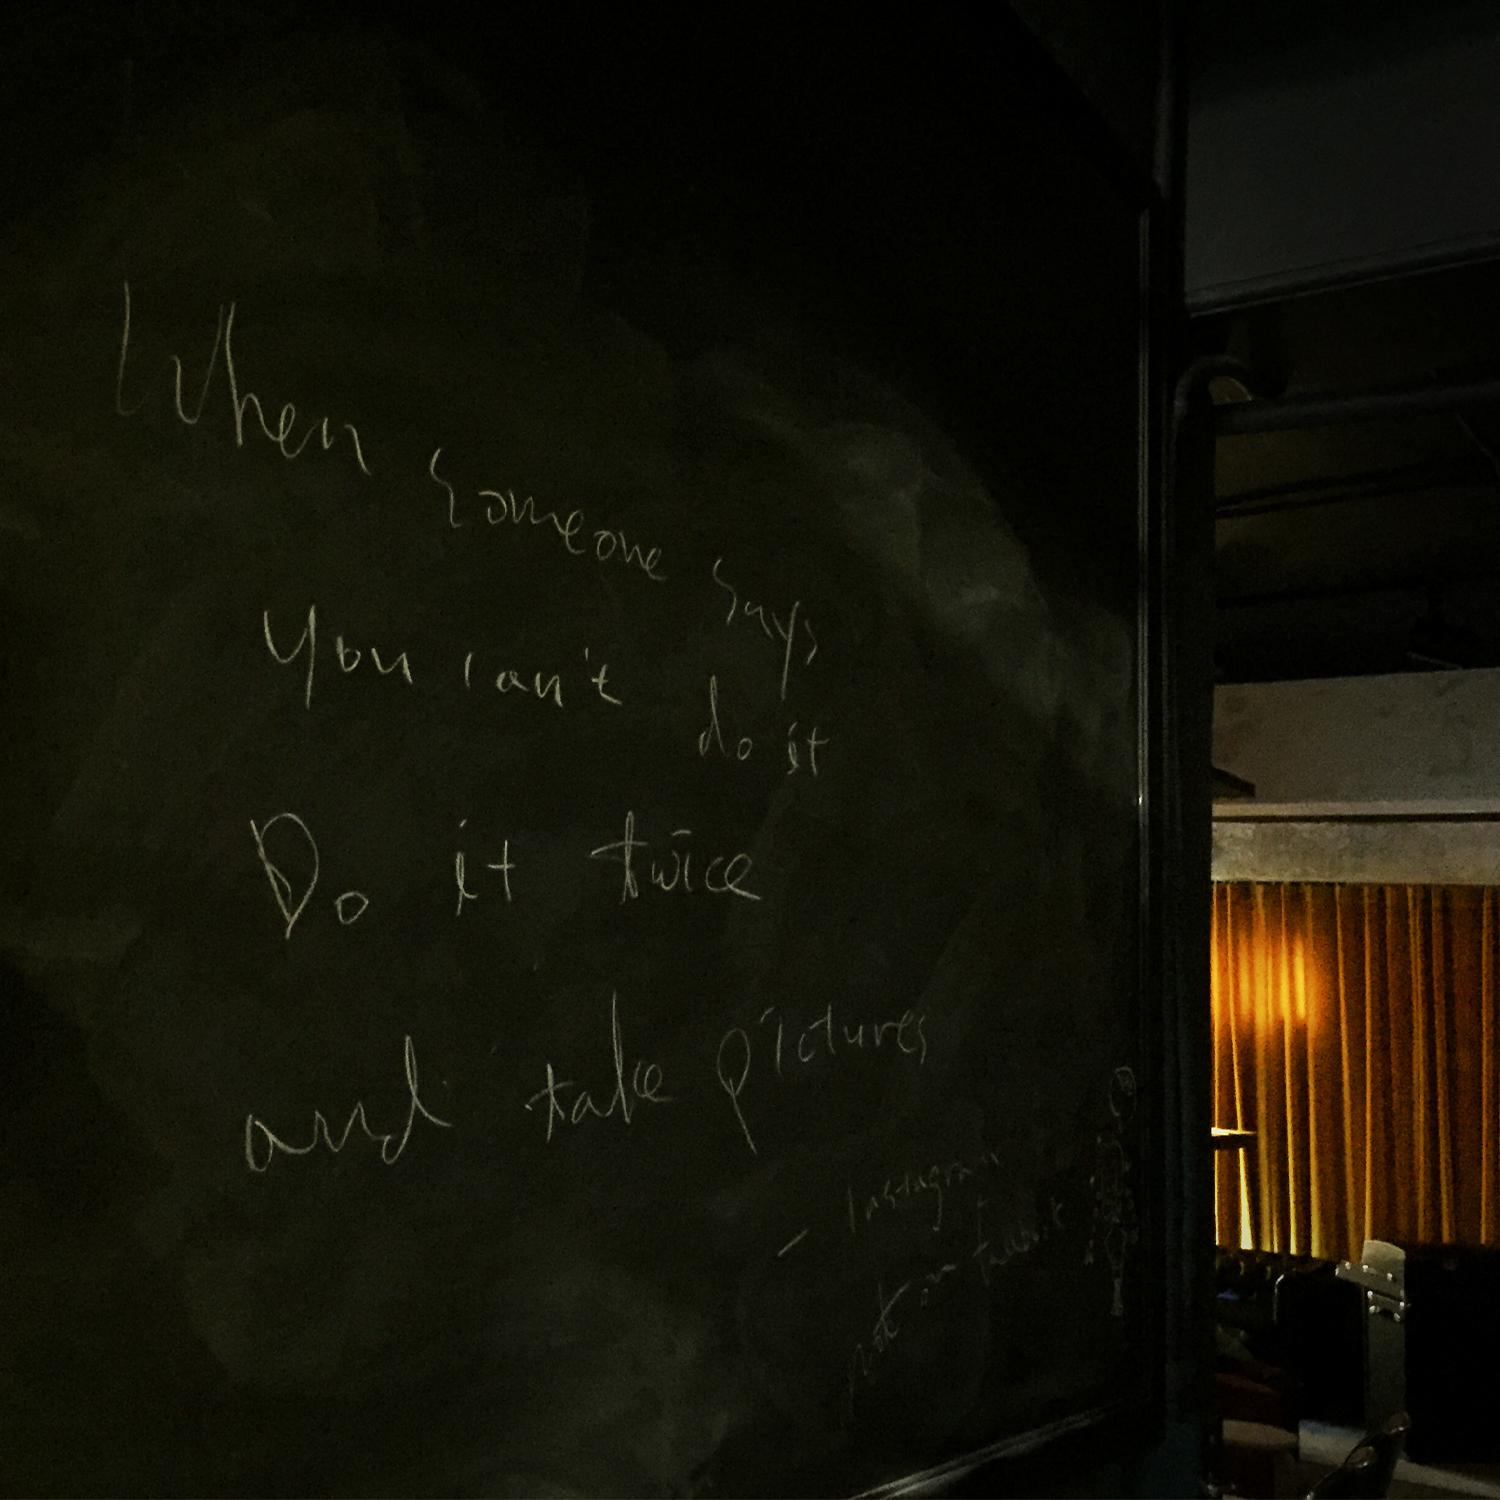 When someone says
you can't do it
Do it twice
and take pictures
- Instagram
not on facebook